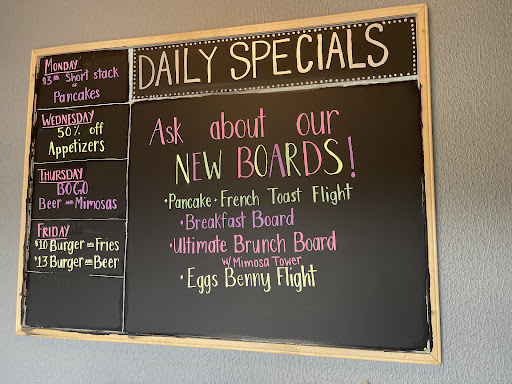 DAILY SPECIALS
MONDAY
$3.00 Short stack
of
Pancakes
WEDNESDAY
50% off
Appetizers
THURSDAY
BOGO
Beer and Mimosas
FRIDAY
$10 Burger and Fries
$13 Burger and Beer
Ask about our
NEW BOARDS!
• Pancake + French Toast Flight
• Breakfast Board
• Ultimate Brunch Board
w/ Mimosa Tower
• Eggs Benny Flight